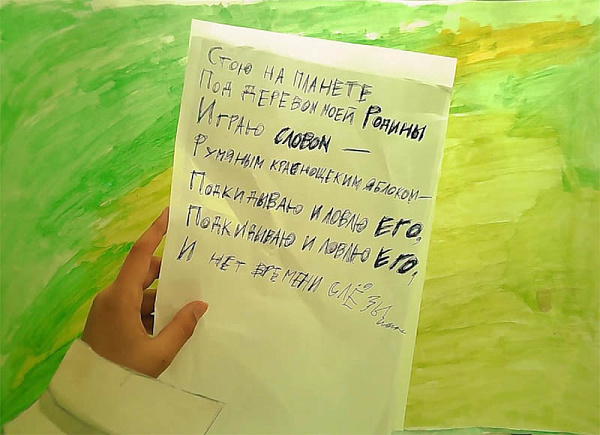 Стою на планете
Под деревом моей Родины
Играю словом —
Румяным краснощеким яблоком—
Подкидываю и ловлю его,
Подкидываю и ловлю его,
И нет времени